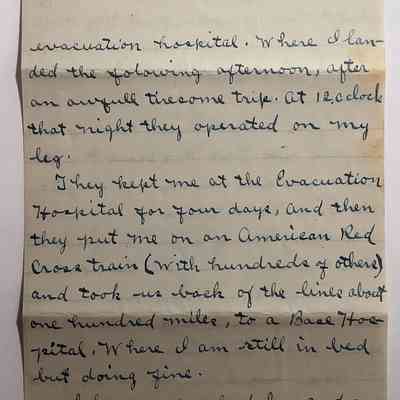 evacuation hospital. Where I lan-
ded the folowing afternoon, after
an awfull tiresome trip. At 12,oclock
that night they operated on my
leg.
They kept me at the Evacuation
Hospital for four days, and then
they put me on an American Red
Cross train (with hundreds of others)
and took us back of the lines about
one hundred miles, to a Base Hos-
pital. Where I am still in bed
but doing fine.